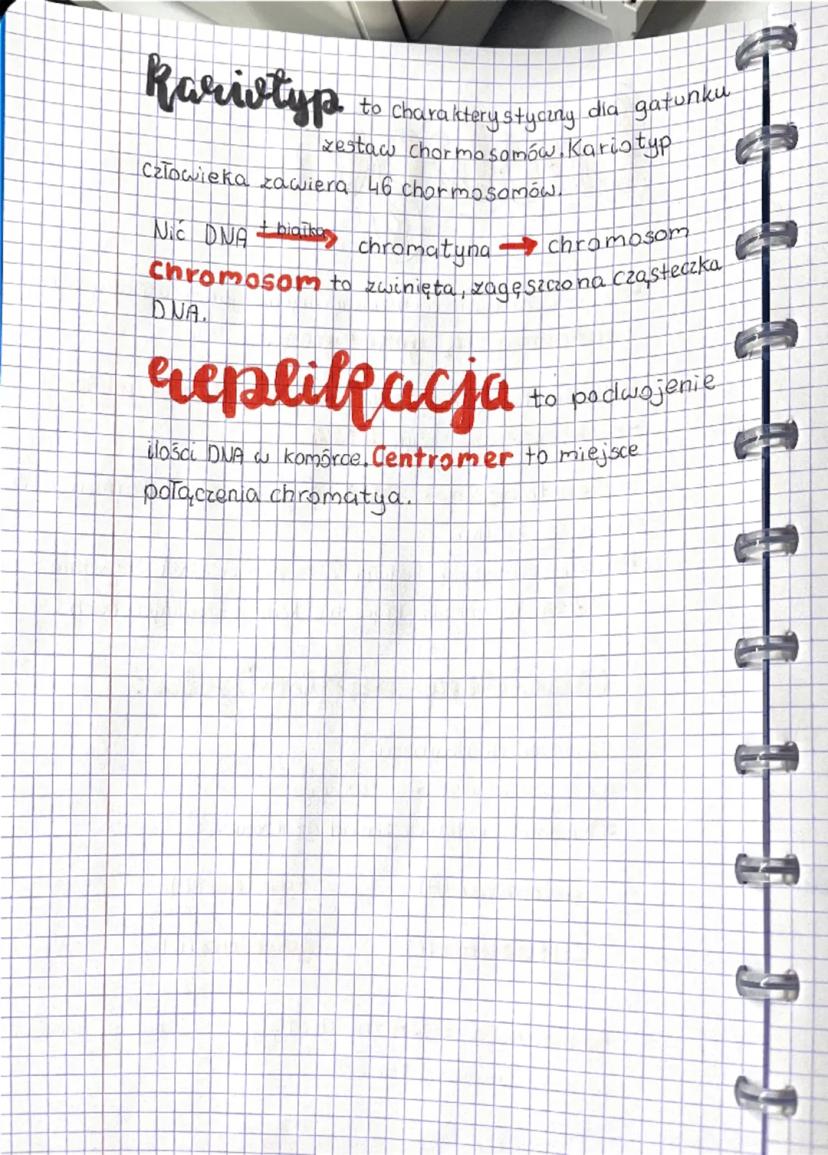 Kariotyp to charakterystyczny dla gatunku
zestaw chormosomów. Kariotyp
człowieka zawiera 46 chormosomów.
Nić DNA + białka chromatyna → chromosom
chromosom to zwinięta, zagęszczona cząsteczka
DNA.
replikacja to podwojenie
ilości DNA w komórce. Centromer to miejsce
połączenia chromatya.